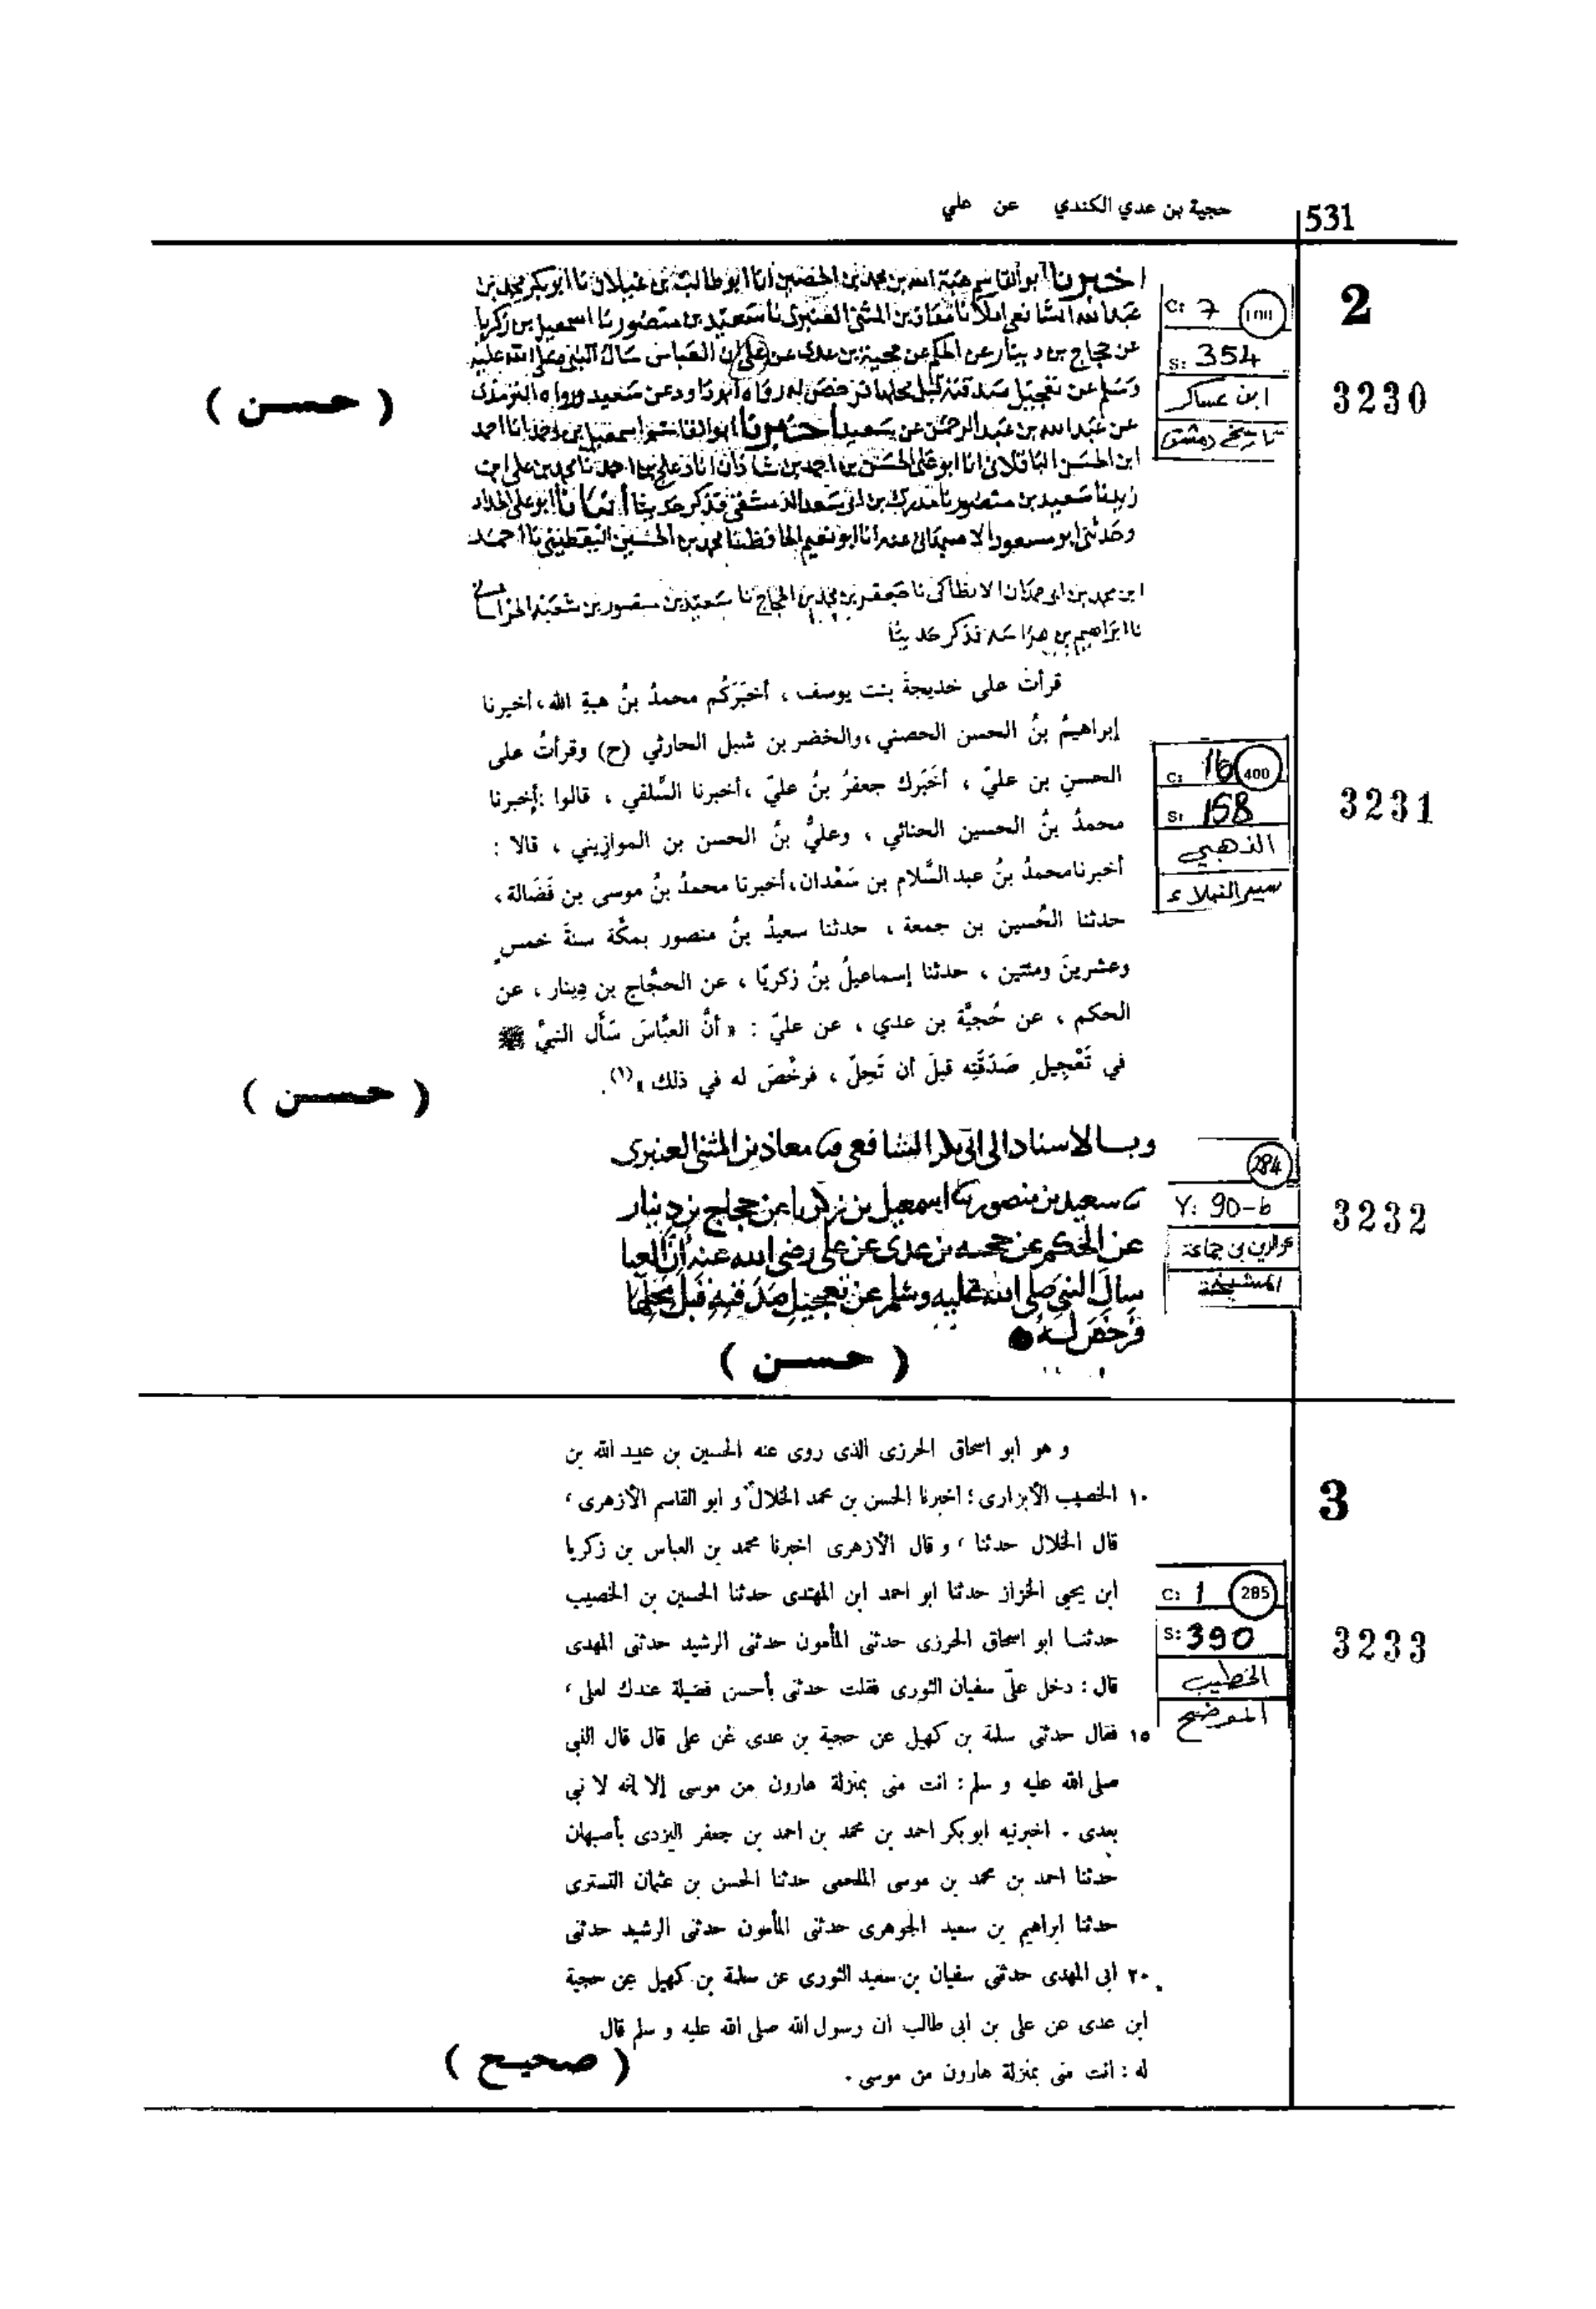 حجية بن عدي الكندي عن علي
531
2
اخبرنا ابو القاسم هبة الله بن محمد بن الحصين انا ابو طالب بن غيلان نا ابو بكر محمد بن
عبد الله الشافعي املاء نا معاذ بن المثنى العنبري نا سعيد بن منصور نا اسمعيل بن زكريا
عن حجاج بن دينار عن الحكم عن حجية بن عدي عن علي ان العباس سال النبي صلى الله عليه
وسلم عن تعجيل صدقته قبل محلها فرخص له رواه ابو داود عن سعيد ورواه الترمذي
عن عبد الله بن عبد الرحمن عن سعيد اخبرنا ابو القاسم اسمعيل بن احمد انا احمد
ابن الحسن الباقلاني انا ابو علي الحسن بن احمد بن شاذان انا دعلج بن احمد نا محمد بن علي ابن
زيد نا سعيد بن منصور نا مدرك بن ابي سعد الدمشقي فذكر حديثا أنبأنا ابو علي الحداد
وحدثني ابو مسعود الاصبهاني عنه انا ابو نعيم الحافظ نا محمد بن الحسين اليقطيني نا احمد
ابن محمد بن ابي حمدان الانطاكي نا جعفر بن محمد بن الحجاج نا سعيد بن منصور بن شعبة الخراساني
نا ابراهيم بن هراسة فذكر حديثا
C: 7 100
S: 354
ابن عساكر
تاريخ دمشق
3230
( حسن )
قرأت على خديجة بنت يوسف ، أخبَرَكُم محمدُ بنُ هبةِ الله، أخبرنا
إبراهيمُ بنُ الحسن الحصني ،والخضر بن شبل الحارثي (ح) وقرأتُ على
الحسنِ بن عليّ ، أخَبَرك جعفرُ بنُ عليّ ،أخبرنا السِّلفي ، قالوا :أخبرنا
محمدُ بنُ الحسين الحنائي ، وعليُّ بنُ الحسن بن الموازيني ، قالا :
أخبرنامحمدُ بنُ عبدالسَّلام بن سَعْدان،أخبرنا محمدُ بنُ موسى بن فَضَالة،
حدثنا الحُسين بن جمعة ، حدثنا سعيدُ بنُ منصور بمكَّة سنةَ خمسٍ
وعشرينَ ومئتين ، حدثنا إسماعيلُ بنُ زكريّا ، عن الحجَّاج بن دِينار ، عن
الحكم ، عن حُجيَّة بن عدي ، عن عليّ : « أنَّ العبَّاسَ سَأَل النبيَّ ﷺ
في تَعْجِيلِ صَدَقَتِه قبلَ أن تَحِلّ ، فرخَّصَ له في ذلك »(١).
C: 16 400
S: 158
الذهبي
سير النبلاء
3231
( حسن )
وبالاسناد الى ابي بكر الشافعي نا معاذ بن المثنى العنبري
نا سعيد بن منصور نا اسمعيل بن زكريا عن حجاج بن دينار
عن الحكم عن حجية بن عدي عن علي رضي الله عنه أنّ العبا
سال النبي صلى الله عليه وسلم عن تعجيل صدقته قبل محلها
فرخص له
284
Y: 90-b
عزالدين بن جماعة
المشيخة
3232
( حسن )
3
و هو أبو اسحاق الحرزى الذى روى عنه الحسين بن عبيد الله بن
١٠ الخصيب الأبزارى؛ اخبرنا الحسن بن محمد الخلال و ابو القاسم الأزهرى ،
قال الخلال حدثنا ، و قال الأزهرى اخبرنا محمد بن العباس بن زكريا
ابن يحيى الخزاز حدثنا ابو احمد ابن المهتدى حدثنا الحسين بن الخصيب
حدثنا ابو اسحاق الحرزى حدثنى المأمون حدثنى الرشيد حدثنى المهدى
قال : دخل علىّ سفيان الثورى فقلت حدثنى بأحسن فضيلة عندك لعلى ،
١٥ فقال حدثنى سلمة بن كهيل عن حجية بن عدى عن على قال قال النبى
صلى الله عليه و سلم : انت منى بمنزلة هارون من موسى إلا انه لا نبى
بعدى . اخبرنيه ابو بكر احمد بن محمد بن احمد بن جعفر اليزدى بأصبهان
حدثنا احمد بن محمد بن موسى الملحمى حدثنا الحسن بن عثمان التسترى
حدثنا ابراهيم بن سعيد الجوهرى حدثنى المأمون حدثنى الرشيد حدثنى
٢٠ ابى المهدى حدثنى سفيان بن سعيد الثورى عن سلمة بن كهيل عن حجية
ابن عدى عن على بن ابى طالب ان رسول الله صلى الله عليه و سلم قال
له : انت منى بمنزلة هارون من موسى .
C: 1 285
S: 390
الخطيب
الموضح
3233
( صحيح )